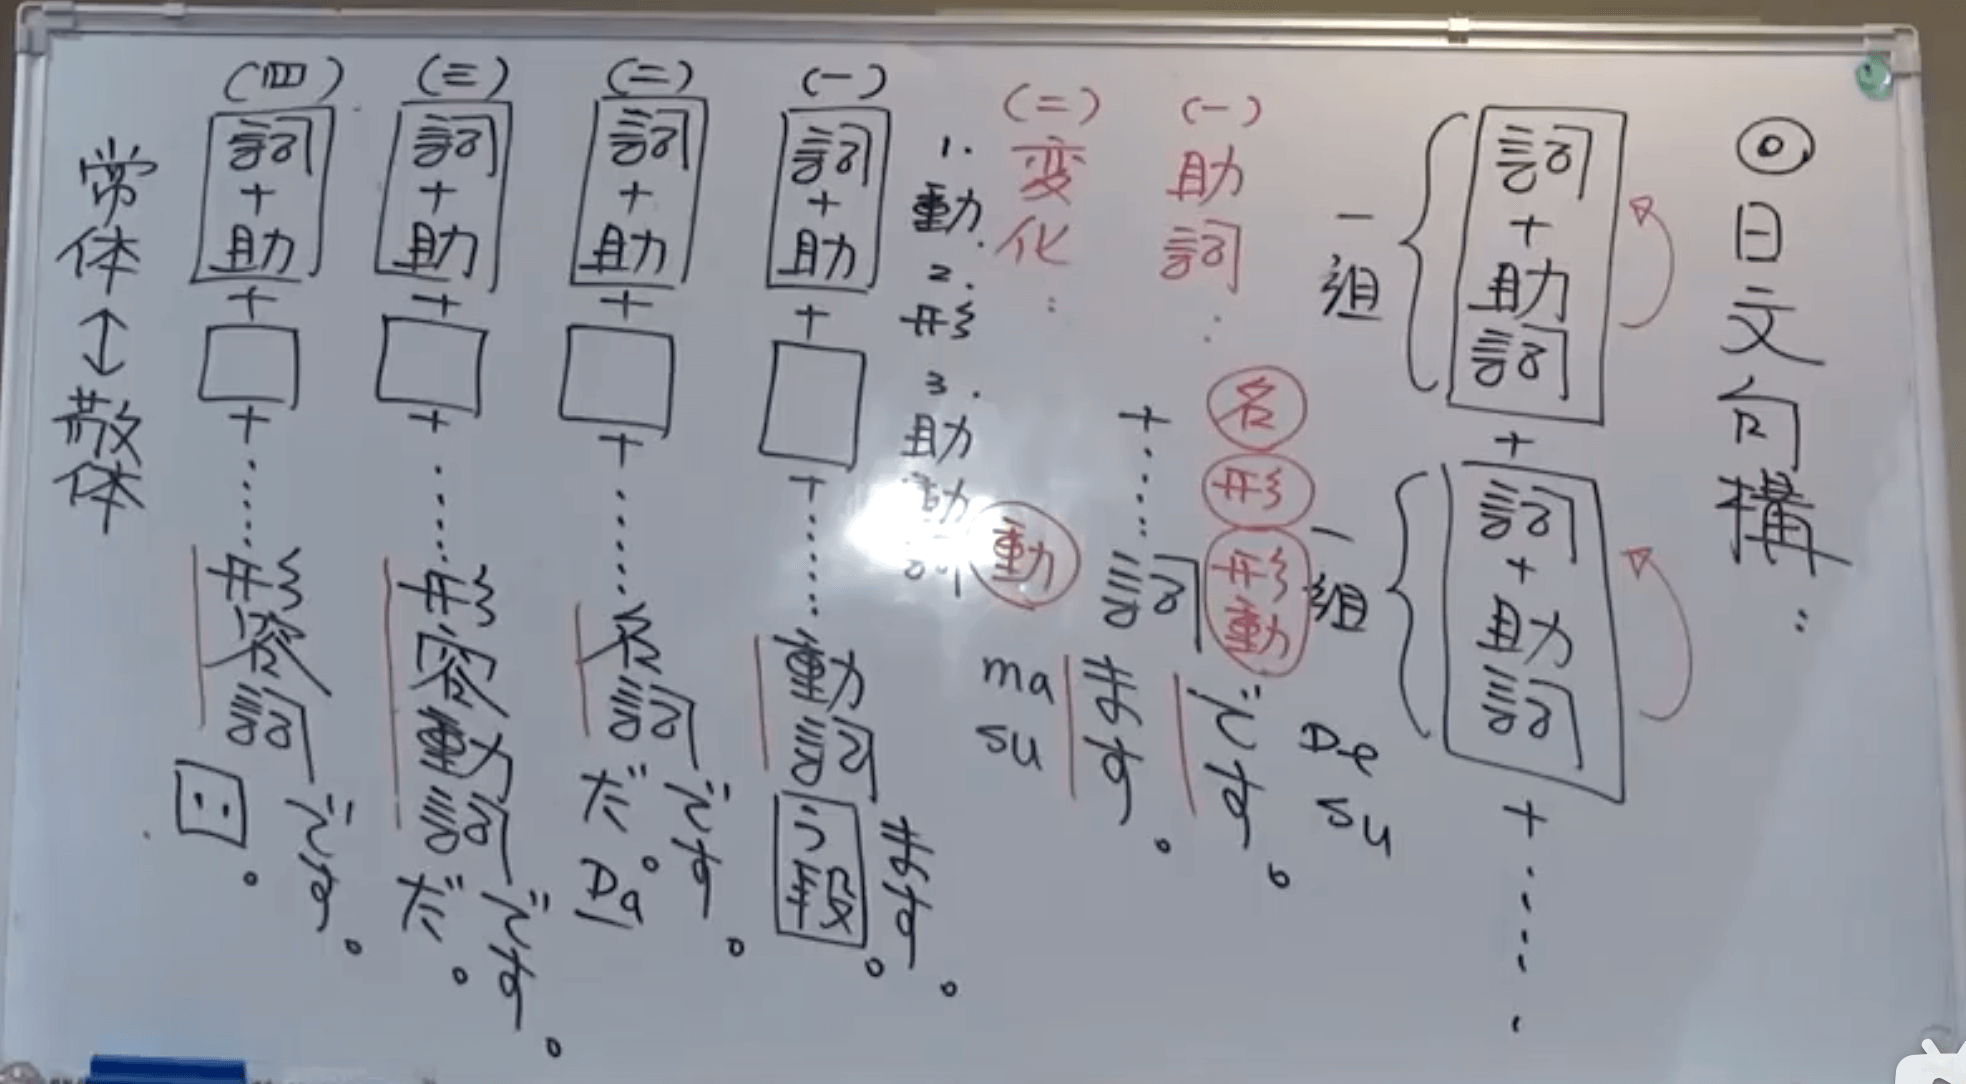 ◎日文句構：
詞+助詞
+
詞+助詞
+……
一組
一組
(一)助詞：
名
形
形動
+……詞
です。
De su
ます。
ma su
動
(二)変化：
1.動.
2.形
3.助動詞
(一)
詞+助
+
+……動詞
う段。
ます。
(二)
詞+助
+
+……名詞
だ。
Da
です。
(三)
詞+助
+
+……形容動詞
だ。
です。
(四)
詞+助
+
+……形容詞
い。
です。
常体↔敬体